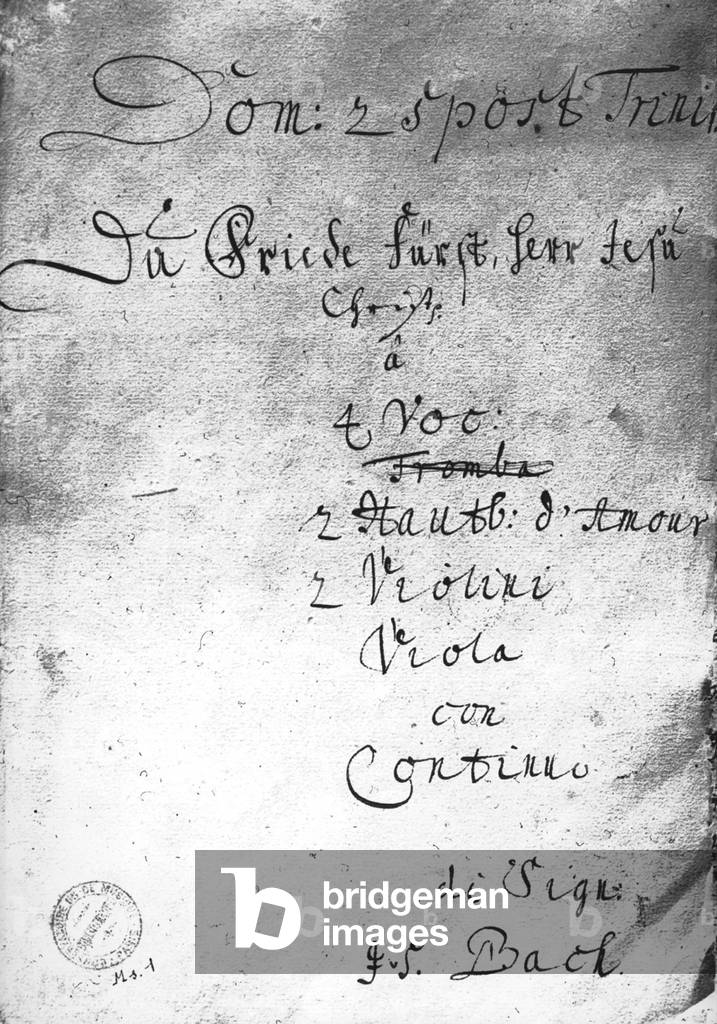 Dom: 25 post Trini
Du Friede Fürst, Herr Jesu
Christ.
â
4 Voc:
Tromba
2 Hautb: d'Amour
2 Violini
Viola
con
Continuo
di Sign:
J. S. Bach.
bridgeman
images
Ms. 1